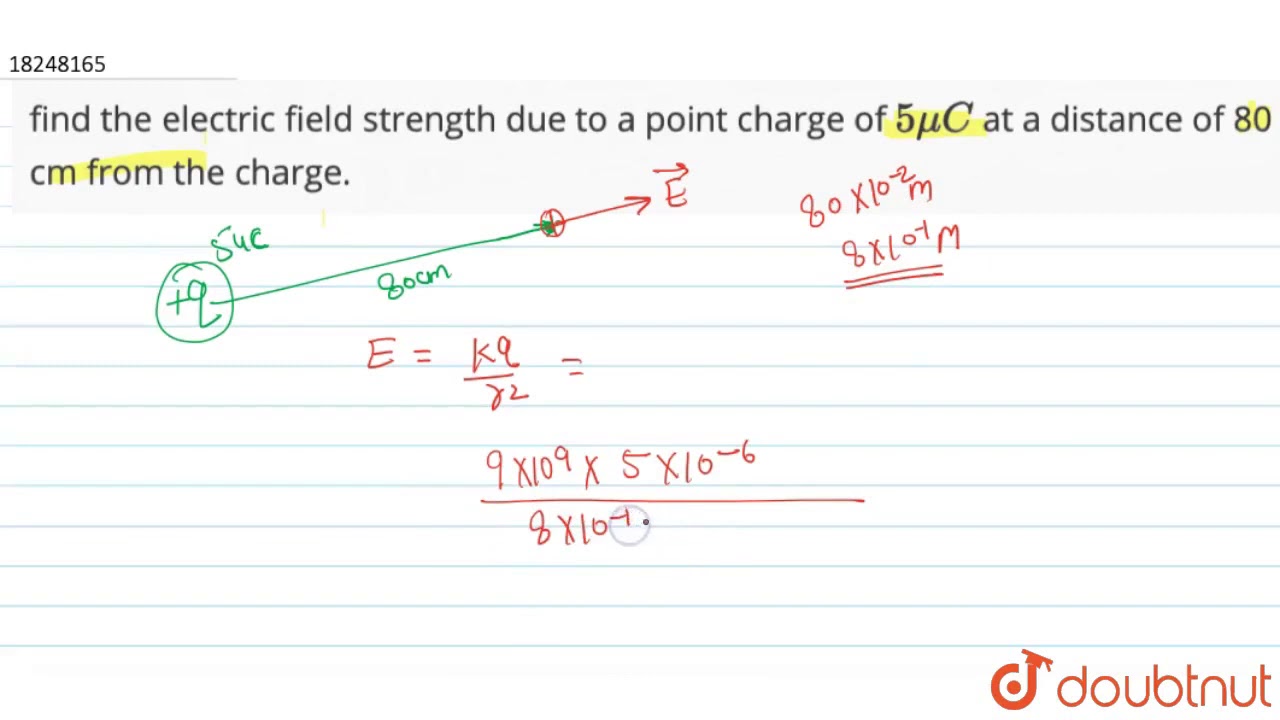 18248165
find the electric field strength due to a point charge of 5μC at a distance of 80
cm from the charge.
5μC
+q
80cm
+
E
80×10⁻²m
8×10⁻¹m
E = kq/r2 =
9×10⁹ × 5×10⁻⁶
8×10⁻¹
doubtnut